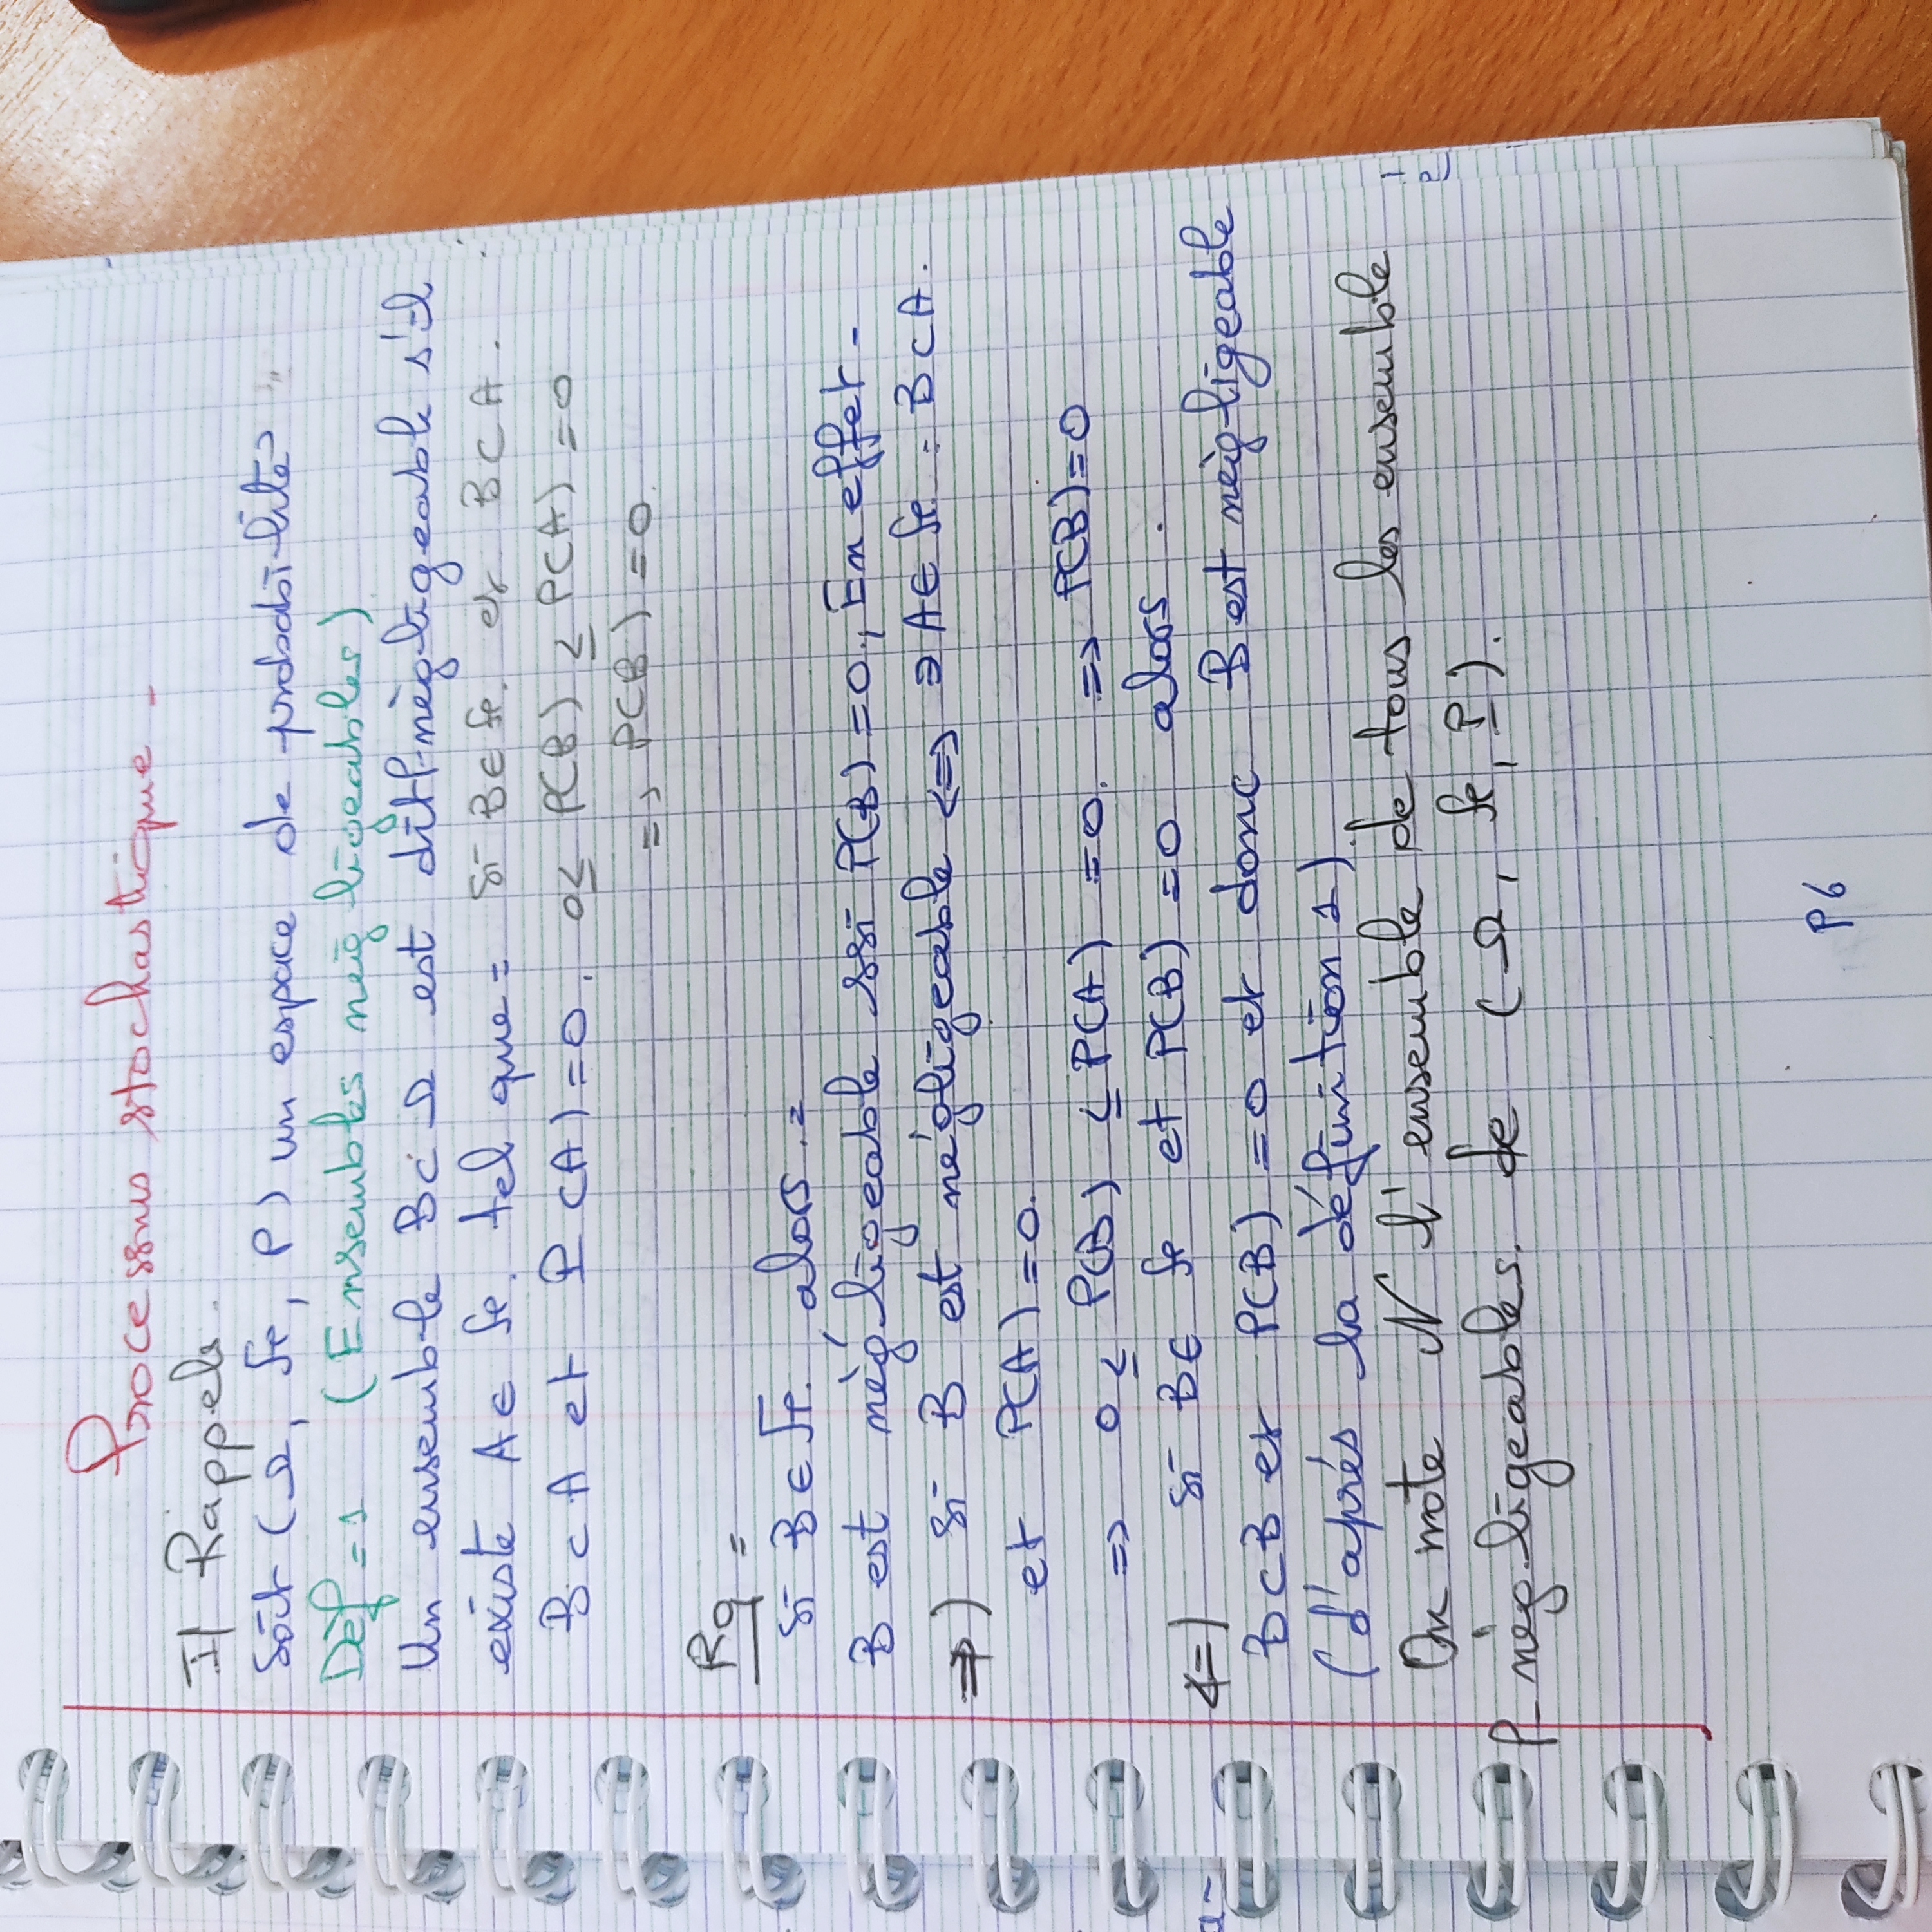 Processus stochastique -
I/ Rappels.
Soit (Ω, fe, P) un espace de probabilité
Dèf = 1 (Ensembles négligeables)
Un ensemble B ⊂ Ω est dit P-nègligeable s'il
existe A ∈ fe. tel que = si B ∈ fe. et B ⊂ A.
B ⊂ A et P(A) = 0. 0 ≤ P(B) ≤ P(A) = 0
=> P(B) = 0.
Rq =
si B ∈ fe. alors. =
B est nègligeable ssi P(B) = 0., En effet -
⇒) si B est négligeable <=> ∃ A ∈ fe = B ⊂ A.
et P(A) = 0.
=> 0 ≤ P(B) ≤ P(A) = 0. => P(B) = 0
<=) si B ∈ fe et P(B) = 0 alors.
B ⊂ B et P(B) = 0 et donc B est négligeable
(d'aprés la définition 1).
On note N l'ensemble de tous les ensemble
P- négligeables. de (Ω, fe, P).
P6